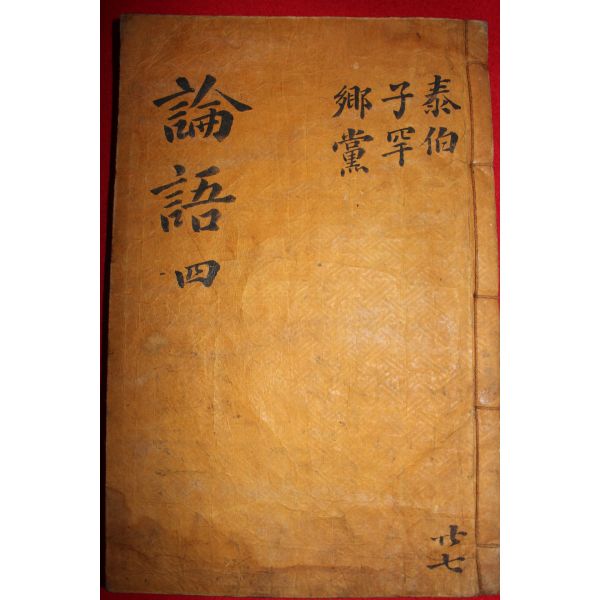 泰伯
子罕
鄕黨
論語四
共七